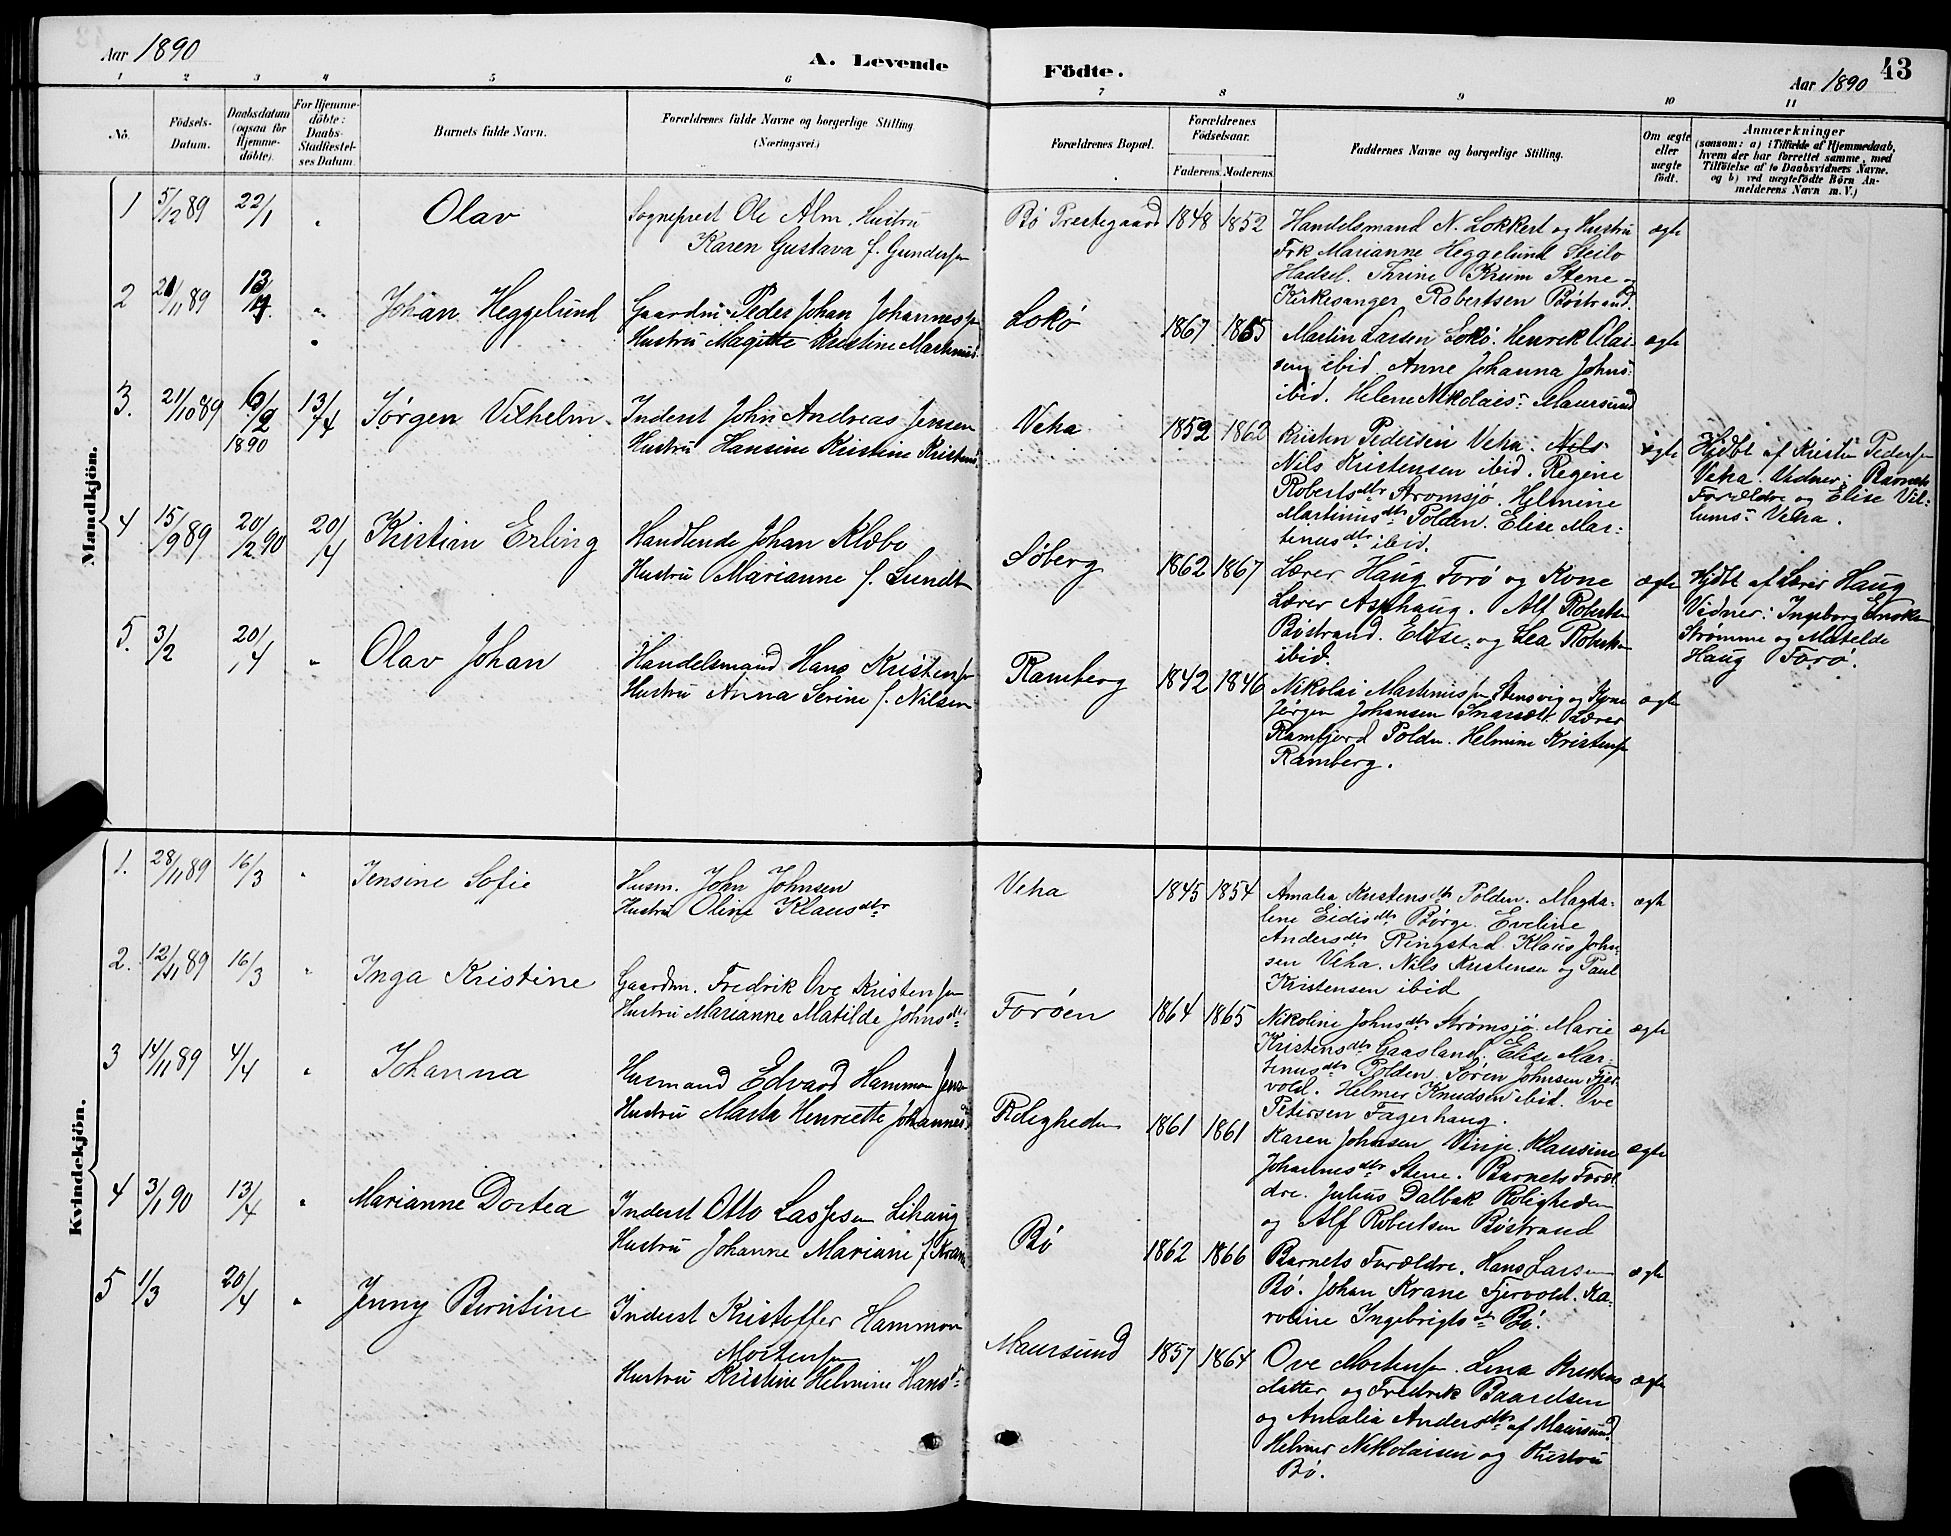 Aar 1890
A. Levende
Födte.
Aar 1890
43
1 2 3 4 5 6 7 8 9 10 11
No.
Födsels-
Datum.
Daabsdatum
(ogsaa for
Hjemme-
döbte).
For Hjemme-
döbte:
Daabs-
Stadfæstel-
ses Datum.
Barnets fulde Navn.
Forældrenes fulde Navne og borgerlige Stilling
(Næringsvei.)
Forældrenes Bopæl.
Forældrenes
Födselsaar.
Faderens. Moderens.
Faddernes Navne og borgerlige Stilling.
Om ægte
eller
uægte
födt.
Anmærkninger
(saasom: a) i Tilfælde af Hjemmedaab,
hvem der har forrettet samme, med
Tilföielse af to Daabsvidners Navne.
og b) ved uægtefödte Börn An-
melderens Navn m. V.)
Mandkjön.
1 5/12 89 22/1 " Olav
Sogneprest Ole Alm. Hustru
Karen Gustava f. Gundersen
Bø Prestegaard 1848 1852
Handelsmand N. Lokkert og Hustru
Frk Marianne Heggelund Steilo
Hadsel. Thrine Krum Stene og
Kirkesanger Robertsen Bøstrand.
ægte
2 21/11 89 13/4 " Johan Heggelund
Gaardm. Peder Johan Johannessen
Hustru Magitte Kristine Martinusd.
Lokø 1867 1865
Martin Larsen Lokø. Henrik Olai-
sen ibid. Anne Johanna Johns-
ibid. Helene Nikolais- Maursund
ægte
3. 21/10 89 6/2 1890 13/4 Jørgen Vilhelm.
Inderst John Andreas Jensen
Hustru Hansine Kristine Kristensd.
Veha 1852 1862
Kristen Pedersen Veha. Nils
Nils Kristensen ibid. Regine
Robertsdtr Strømsjø. Helmine
Martinusdtr Polden. Elise Mar-
tinusdtr ibid.
ægte
Hjdbt af Kristen Pedersen
Veha. Vidner: Barnets
Forældre og Elise Vil-
lums- Veha.
4. 15/9 89 20/2 90 20/4 Kristian Erling
Handlende Johan Klæbo
Hustru Marianne f. Lundt
Søberg 1862 1867
Lærer Haug Forø og Kone
Lærer Asphaug. Alf Robertsen
Bøstrand. Elise- og Lea Robertsen
ibid.
ægte
Hjdbt af Lærer Haug
Vidner: Ingeborg
Strømme og Matilde
Haug Forø.
5. 3/2 20/4 " Olav Johan
Handelsmand Hans Kristensen
Hustru Anna Serine f. Nilsen
Ramberg 1842 1846
Nikolai Martinussen Stensvig og Kone
Jørgen Johansen Snarset. Lærer
Ramfjord Polden. Helmine Kristensen
Ramberg.
ægte
Kvindekjön.
1. 28/11 89 16/3 " Jensine Sofie
Husm. John Johnsen
Hustru Oline Klausdtr
Veha 1845 1854
Amalia Kristensdtr Polden. Magda-
lene Eidisdtr Børge. Eveline
Andersdtr Ringstad. Klaus John-
sen Veha. Nils Kristensen og Paul
Kristensen ibid
ægte
2. 12/11 89 16/3 " Inga Kristine
Gaardm. Fredrik Ove Kristensen
Hustru Marianne Matilde Johnsdtr
Forøen 1864 1865
Nikoline Johnsdtr Strømsjø. Marie
Kristensdtr Gaasland. Elise Mar-
tinusdtr Polden. Søren Johnsen Fjer-
vold. Helmer Knudsen ibid. Ove
Petersen Fagerhaug.
ægte
3 14/11 89 4/4 " Johanna
Husmand Edvard Hammon Jensen
Hustru Marta Henriette Johannesd
Roligheden 1861 1861
Karen Johnsen Vinje. Klausine
Johannesdtr Stene. Barnets Foræl-
dre. Julius Dalbak Roligheden
og Alf Robertsen Bøstrand
ægte
4 3/1 90 13/4 " Marianne Dortea
Inderst Otto Lassesen Lihaug
Hustru Johanne Mariane f. Krane
Bø 1862 1866
Barnets Forældre. Hans Larsen
Bø. Johan Krane Fjervold. Ka-
roline Ingebrigtsdtr Bø.
ægte
5 1/3 20/4 " Jenny Berntine
Inderst Kristoffer Hammon
Mortensen
Hustru Kristine Helmine Hansd-
Maursund 1857 1864
Ove Mortensen. Lena Kristens
datter og Fredrik Baardsen
og Amalia Andersdtr af Maursund.
Helmer Nikolaisen og Hustru
Bø.
ægte